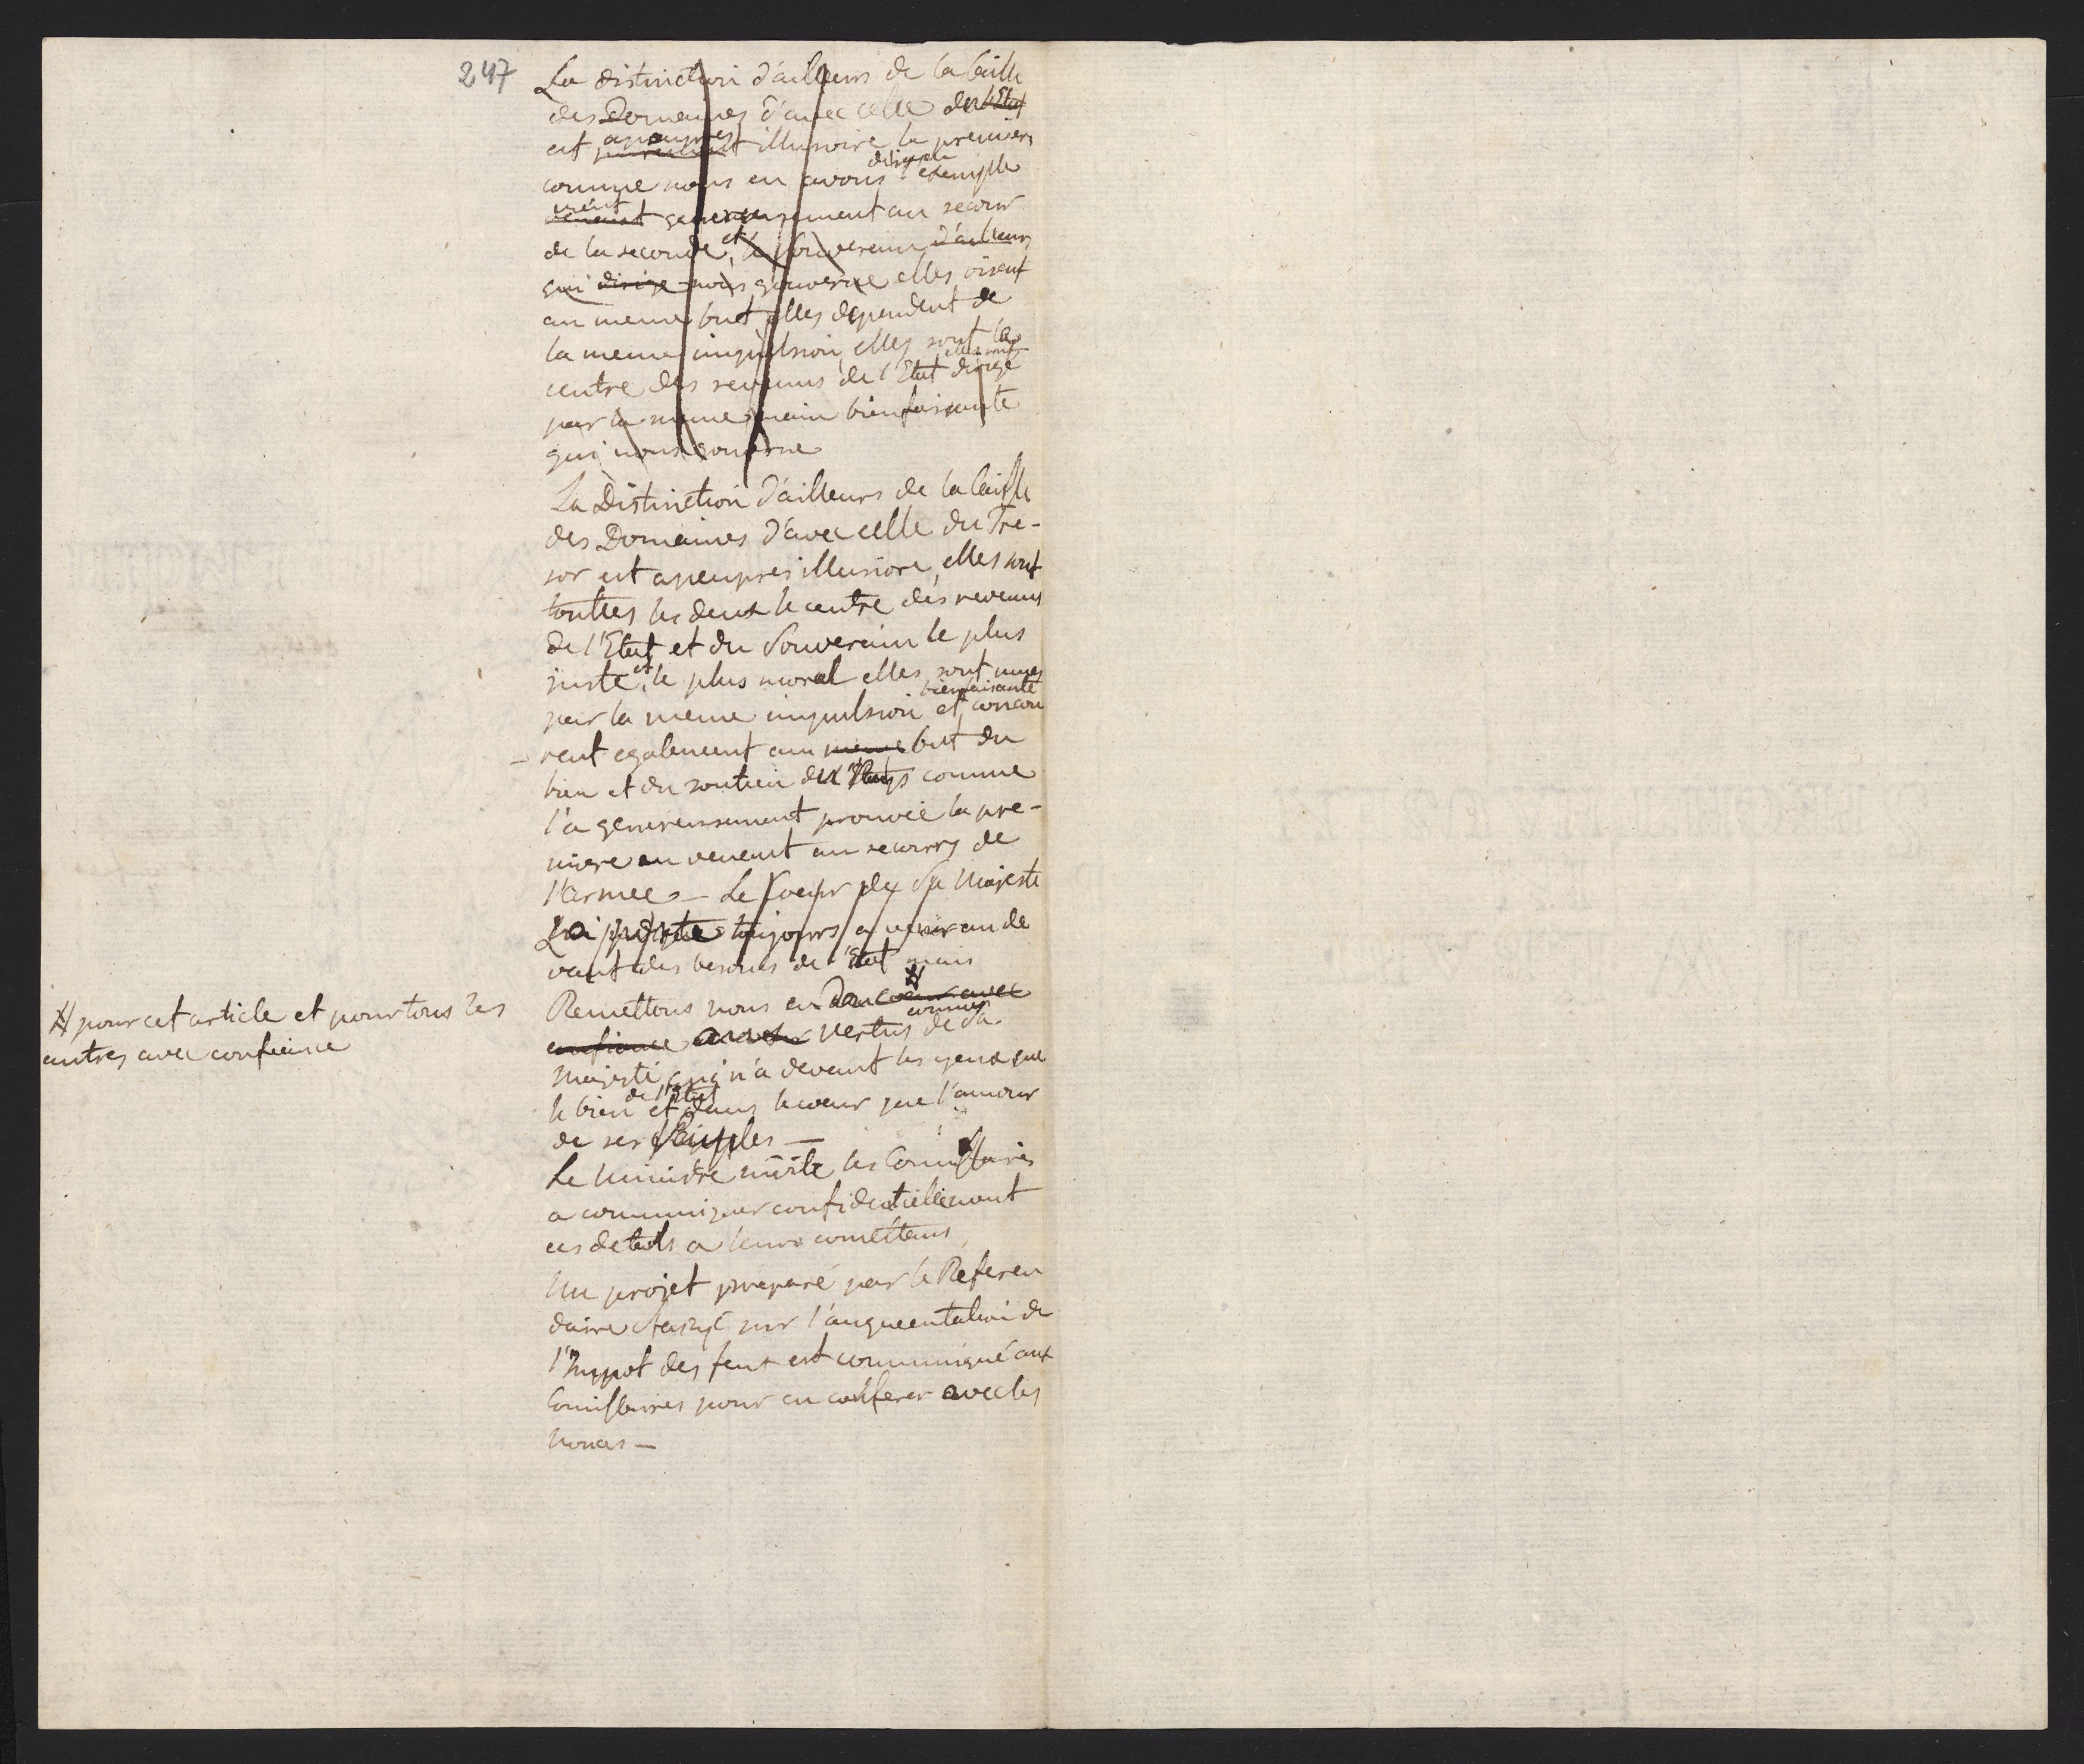 247
La distinction d'ailleurs de la Caisse
des Domaines d'avec celle de l'Etat
est apeuprès illusoire la premiere
comme nous en avons l'exemple
vient genereusement au secour
de la seconde, et le Souverain d'ailleurs
qui dirige nous gouverne elles visent
au meme but elles dependent de
la meme impulsion, elles sont le
elles sont
centre des revenus de l'Etat dirigé
par la meme main bienfaisante
qui nous gouverne
La Distinction d'ailleurs de la Caisse
des Domaines d'avec celle du Tre-
sor est apeuprès illusiore, elles sont
touttes les deux le centre des revenus
de l'Etat et du Souverain le plus
juste, et le plus moral elles sont mues
bienfaisante
par la meme impulsion et concou
-rent egalement au meme but du
bien et du soutien du Pays comme
l'a genereusement prouvée la pre-
miere en venant au secours de
l'Armee - Le Coeur de Sa Majesté
La porte toujours a venir au de
vant des besoins de l'Etat mais
Remettons nous en # Coeur avec
connus
confiance aux Vertus de Sa
Majesté, qui n'a devant les yeux que
de l'Etat
le bien et dans le coeur que l'amour
de ses Peuples —
Le Ministre invite les Comissaires
a communiquer confidentiellement
ces details a leurs comettans,
Un projet préparé par le Referen
daire sur l'augmentation de
l'Impot des feux est communiqué aux
Comissaires pour en conferer avec les
Nonces —
# pour cet article et pour tous les
autres avec confience